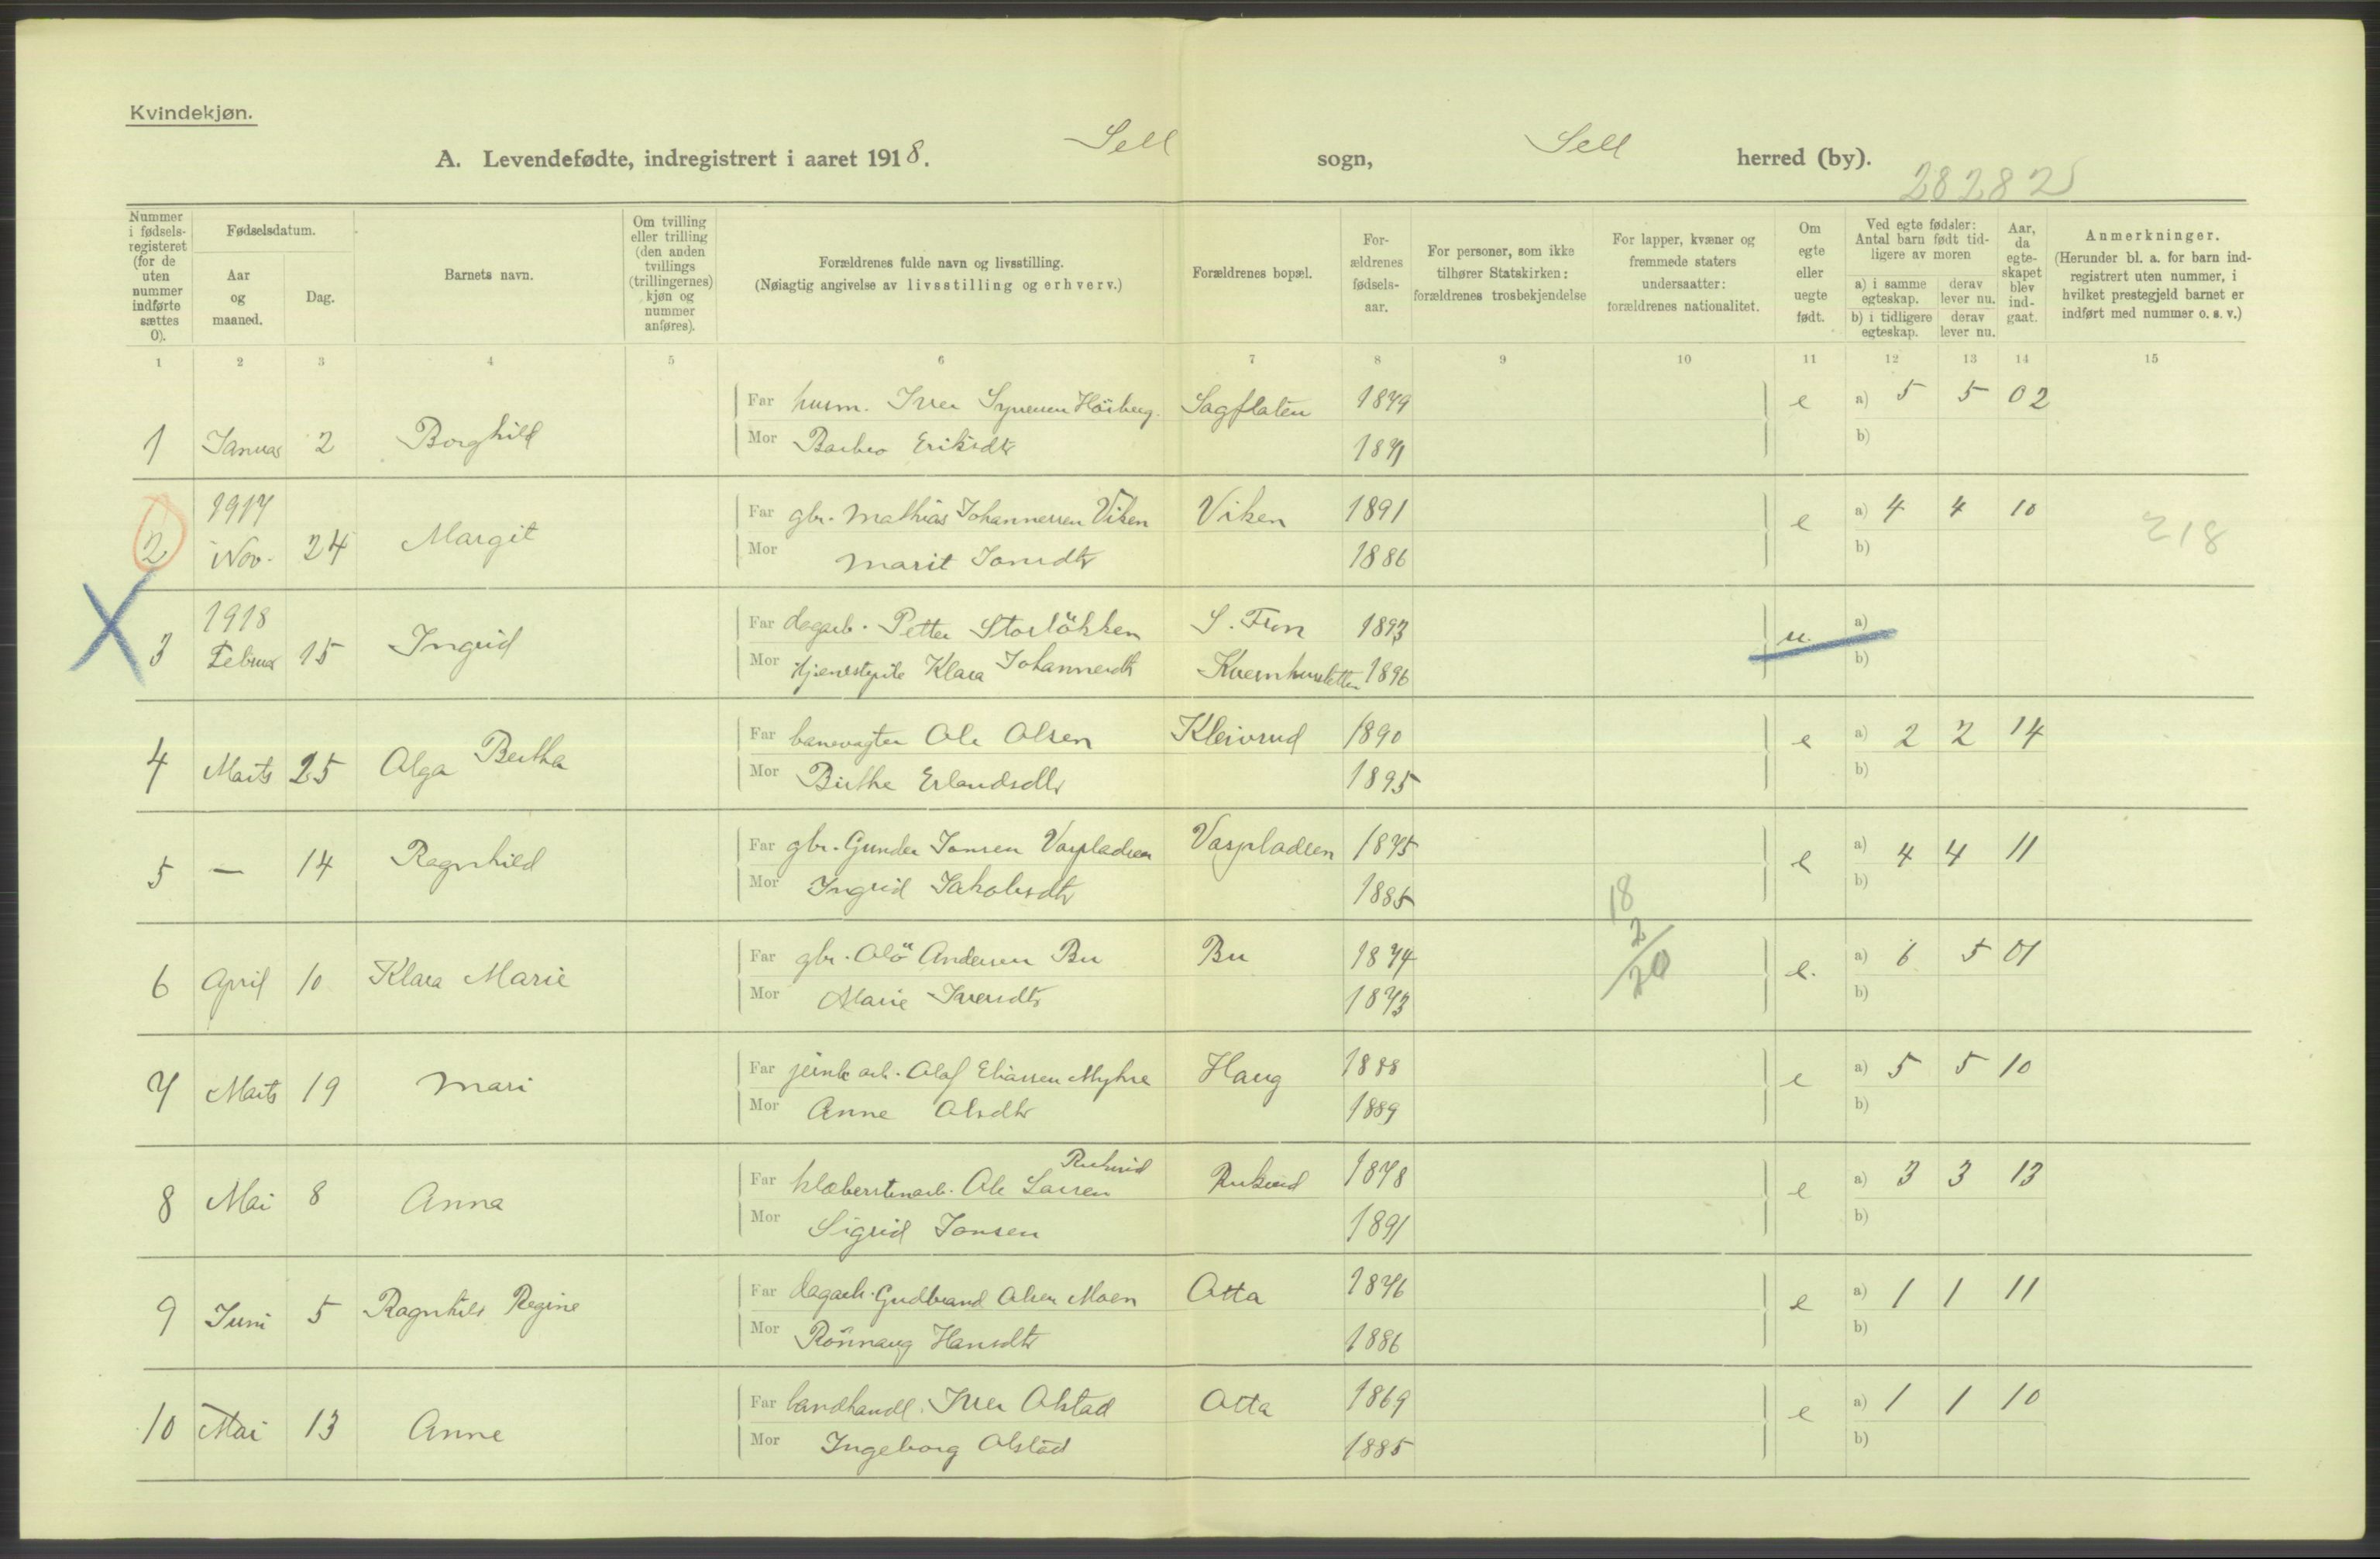 Kvindekjøn.
A. Levendefødte, indregistrert i aaret 1918. Sell sogn, Sell herred (by).
28282
Nummer i fødsels-registeret (for de uten nummer indførte sættes 0).
Fødselsdatum.
Aar og maaned.
Dag.
Barnets navn.
Om tvilling eller trilling (den anden tvillings (trillingernes) kjøn og nummer anføres).
Forældrenes fulde navn og livsstilling.
(Nøiagtig angivelse av livsstilling og erhverv.)
Forældrenes bopæl.
For-ældrenes fødsels-aar.
For personer, som ikke tilhører Statskirken: forældrenes trosbekjendelse
For lapper, kvæner og fremmede staters undersaatter: forældrenes nationalitet.
Om egte eller uegte født.
Ved egte fødsler: Antal barn født tid-ligere av moren
a) i samme egteskap.
derav lever nu.
b) i tidligere egteskap.
derav lever nu.
Aar, da egte-skapet blev ind-gaat.
Anmerkninger.
(Herunder bl. a. for barn ind-registrert uten nummer, i hvilket prestegjeld barnet er indført med nummer o. s. v.)
1 2 3 4 5 6 7 8 9 10 11 12 13 14 15
Far husm. Iver Syversen Hörberg. Sagflaten 1879 e a) 5 5 02
1 Januar 2 Borghild Mor Barbro Eriksdtr 1871 b)
1917
Far gbr. Mathias Johannessen Viken Viken 1891 e a) 4 4 10
2 Nov. 24 Margit Mor Marit Jonsdtr 1886 b) 218
1918
Far dagarb. Petter Storlökken S. Fron 1893 u. a)
3 Februar 15 Ingrid Mor tjenestepike Klara Johannesdtr 1896 b)
Far banevagter Ole Olsen Kleivrud 1890 e a) 2 2 14
4 Marts 25 Olga Bertha Mor Birthe Erlandsdtr 1895 b)
Far gbr. Gunder Jonsen Vaspladsen Vaspladsen 1875 e a) 4 4 11
5 — 14 Ragnhild Mor Ingrid Jakobsdtr 1885 b)
18
2/20
Far gbr. Olö Andersen Bu Bu 1874 e. a) 6 5 01
6 April 10 Klara Marie Mor Marie Iversdtr 1873 b)
Far jernb arb. Olaf Eliassen Myhre Haug 1888 e a) 5 5 10
7 Marts 19 Mari Mor Anne Olsdtr 1889 b)
Far klæberstenarb. Ole Larsen Ruhsrud 1878 e a) 3 3 13
8 Mai 8 Anna Mor Sigrid Jonsen 1891 b)
Far dagarb. Gudbrand Olsen Moen Otta 1876 e a) 1 1 11
9 Juni 5 Ragnhild Regine Mor Rönnaug Hansdtr 1886 b)
Far landhandl. Iver Olstad Otta 1869 e a) 1 1 10
10 Mai 13 Anne Mor Ingeborg Olstad 1885 b)